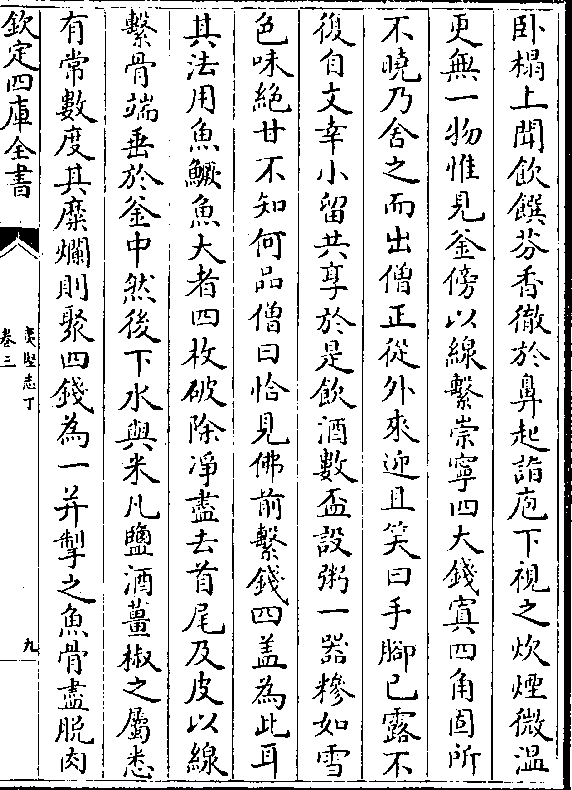 卧榻上聞飲饌芬香徹於鼻起詣庖下視之炊煙微温
更無一物惟見釜傍以線繫崇寧四大錢寘四角固所
不曉乃舍之而出僧正從外來迎且笑曰手腳已露不
復自文幸小留共享於是飲酒數盃設粥一器糝如雪
色味絶甘不知何品僧曰恰見佛前繫錢四盖為此耳
其法用魚鱖魚大者四枚破除凈盡去首尾及皮以線
繫骨端垂於釜中然後下水與米凡鹽酒薑椒之屬悉
有常數度其糜爛則聚四錢為一并掣之魚骨盡脫肉
欽定四庫全書
夷堅志丁
卷三
九